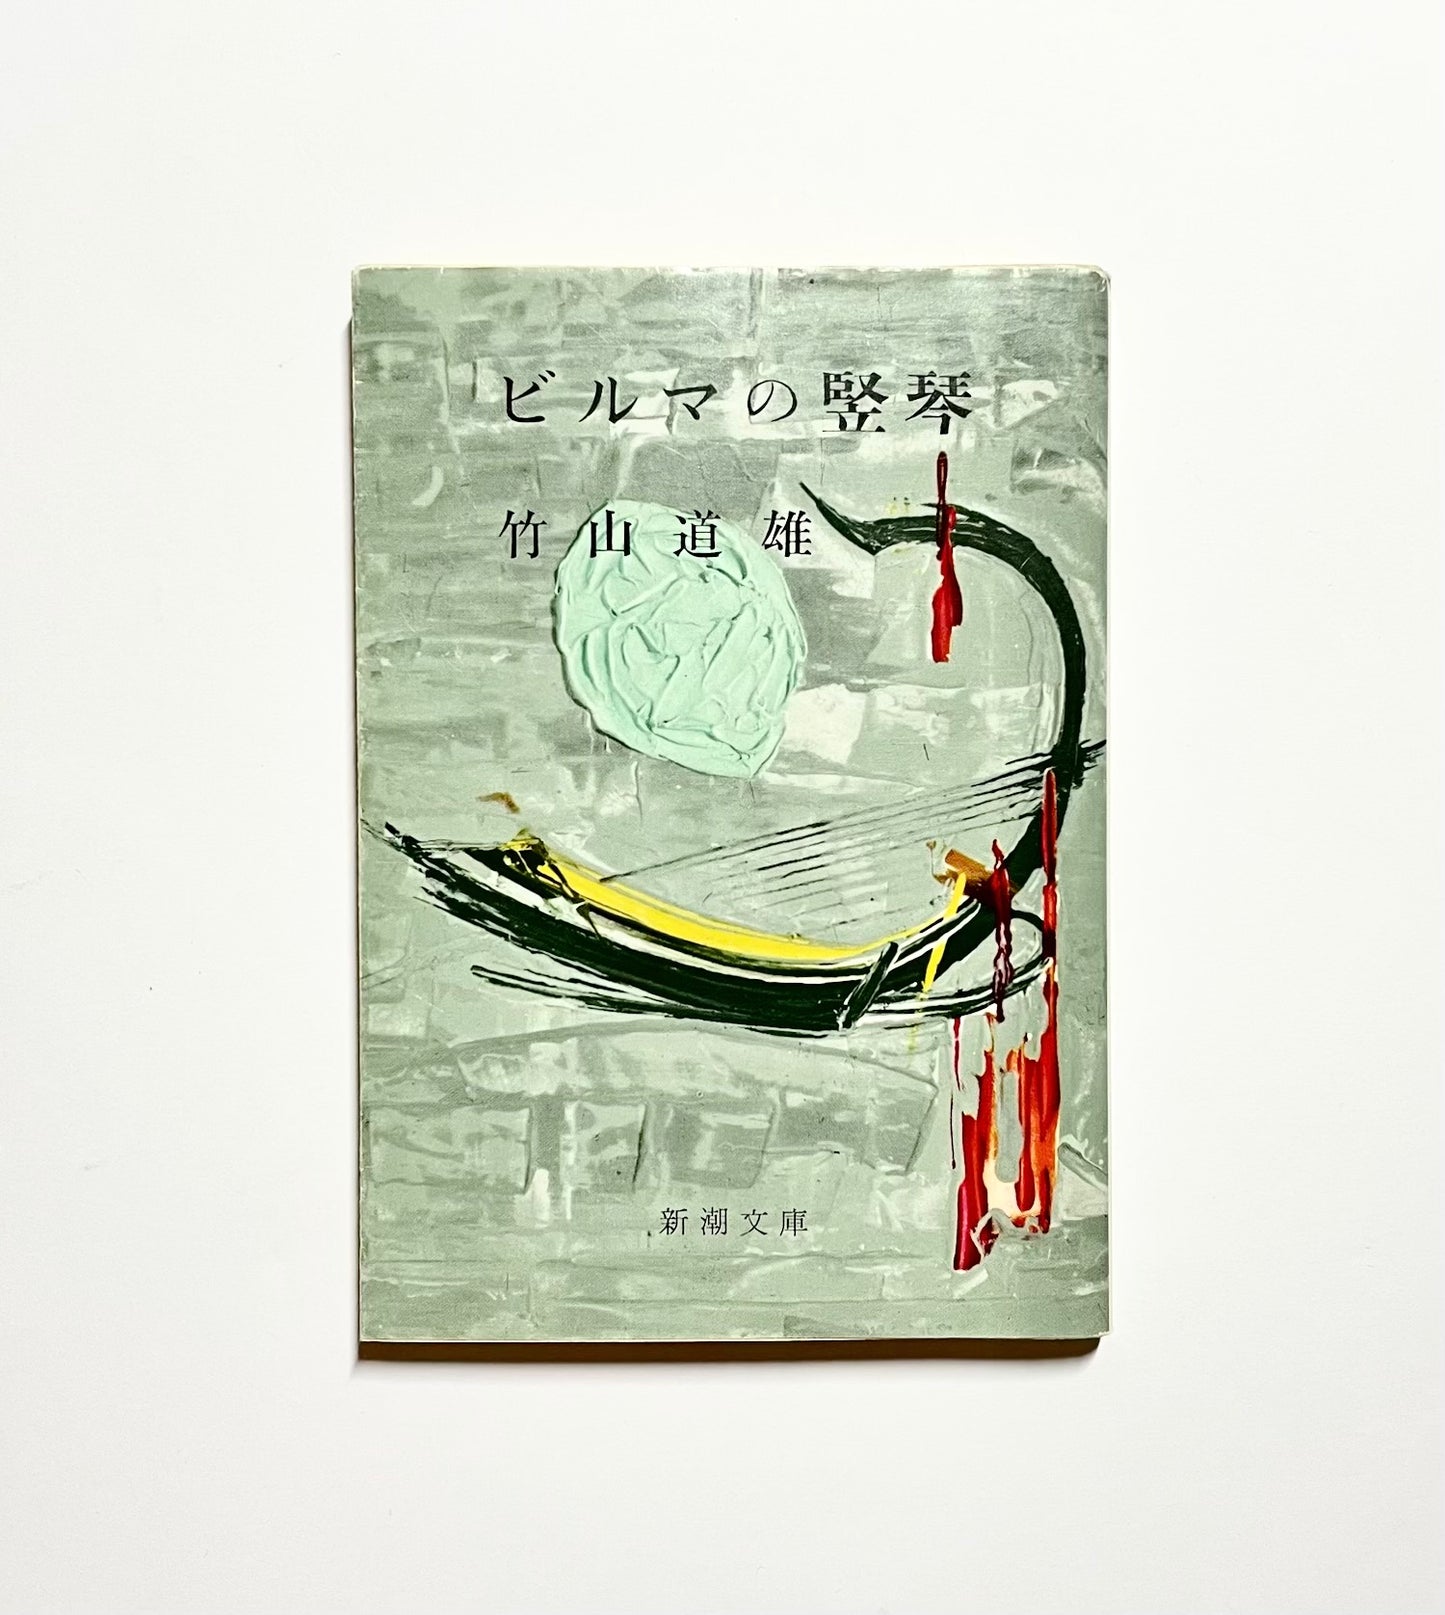 ビルマの竪琴
竹山道雄
新潮文庫